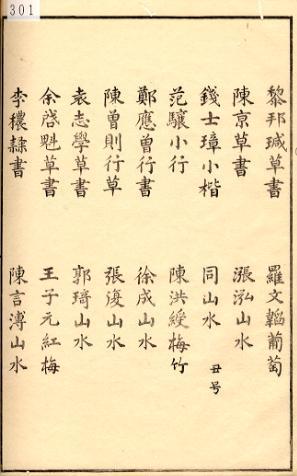 301
黎邦瑊草書　羅文韜葡萄
陳京草書　漲泓山水
錢士璋小楷　同山水　丑号
范驤小行　陳洪綬梅竹
鄭應曾行書　徐成山水
陳曾則行草　張復山水
袁志學草書　郭琦山水
余啓魁草書　王子元紅梅
李穠隸書　陳言溥山水